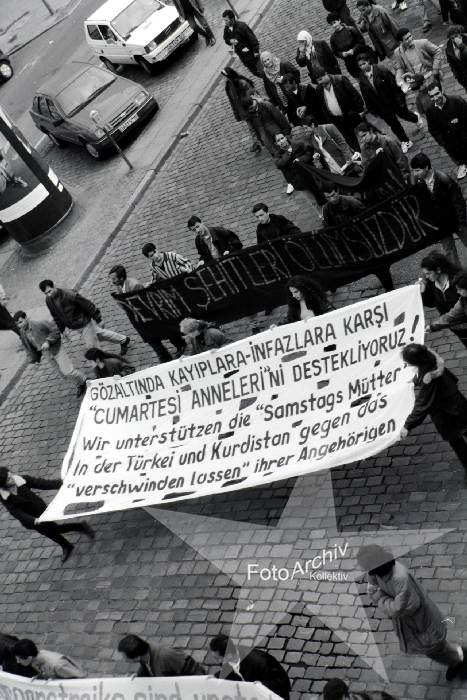 DEVRİM ŞEHİTLERİ ÖLÜMSÜZDÜR
GÖZALTINDA KAYIPLARA-İNFAZLARA KARŞI
"CUMARTESİ ANNELERİ"Nİ DESTEKLİYORUZ!
Wir unterstützen die "Samstags Mütter"
In der Türkei und Kurdistan gegen das
"verschwinden lassen" ihrer Angehörigen
FotoArchiv
Kollektiv
sind